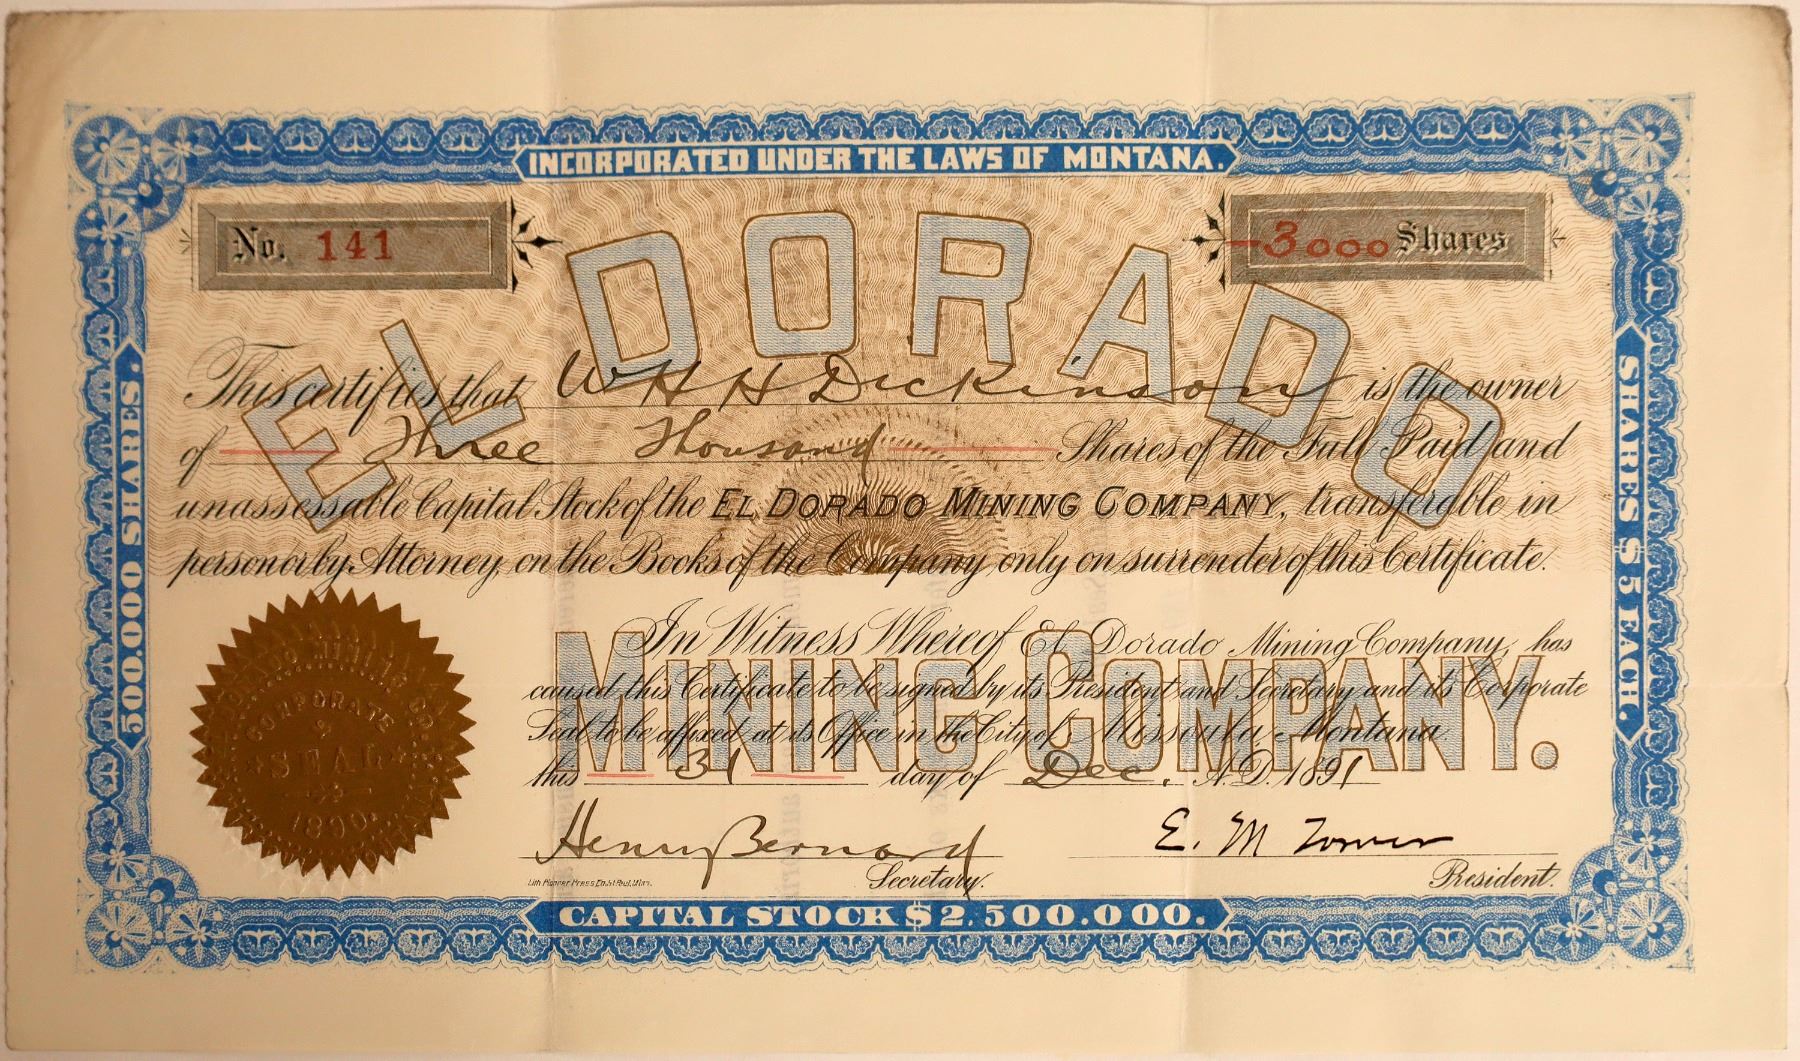 INCORPORATED UNDER THE LAWS OF MONTANA.
No. 141
3000 Shares
EL DORADO
This certifies that W H H Dickinson is the owner
of Three Thousand Shares of the Full Paid and
unassessable Capital Stock of the EL DORADO MINING COMPANY, transferable in
person or by Attorney, on the Books of the Company only on surrender of this Certificate.
MINING COMPANY.
In Witness Whereof El Dorado Mining Company, has
caused this Certificate to be signed by its President and Secretary and its Corporate
Seal to be affixed at its Office in the City of Missoula Montana
this 31 day of Dec. A.D. 1891
Henry Bernard
Secretary.
E. M Tower
President.
Lith Pioneer Press Co. St Paul, Minn.
CAPITAL STOCK $2.500.000.
500.000 SHARES.
SHARES $5 EACH.
MINING CO.
CORPORATE
SEAL
1890.